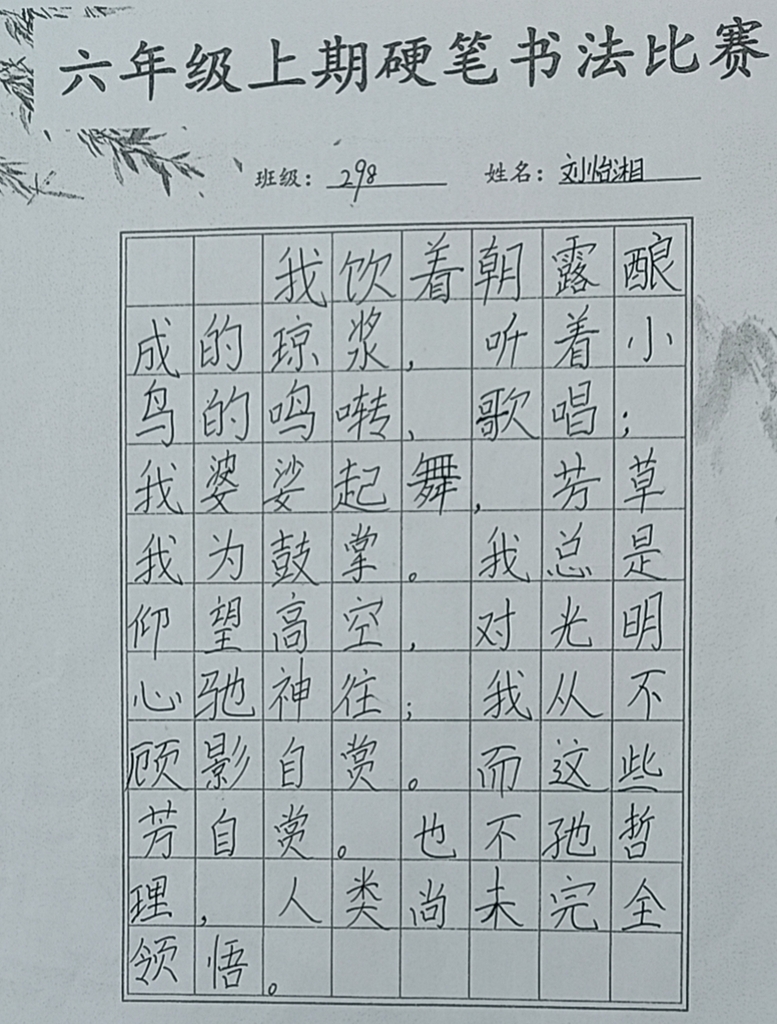 六年级上期硬笔书法比赛
班级：298 姓名：刘怡湘
我饮着朝露酿
成的琼浆，听着小
鸟的鸣啭、歌唱；
我婆娑起舞，芳草
我为鼓掌。我总是
仰望高空，对光明
心驰神往；我从不
顾影自赏。而这些
芳自赏。也不弛哲
理，人类尚未完全
领悟。